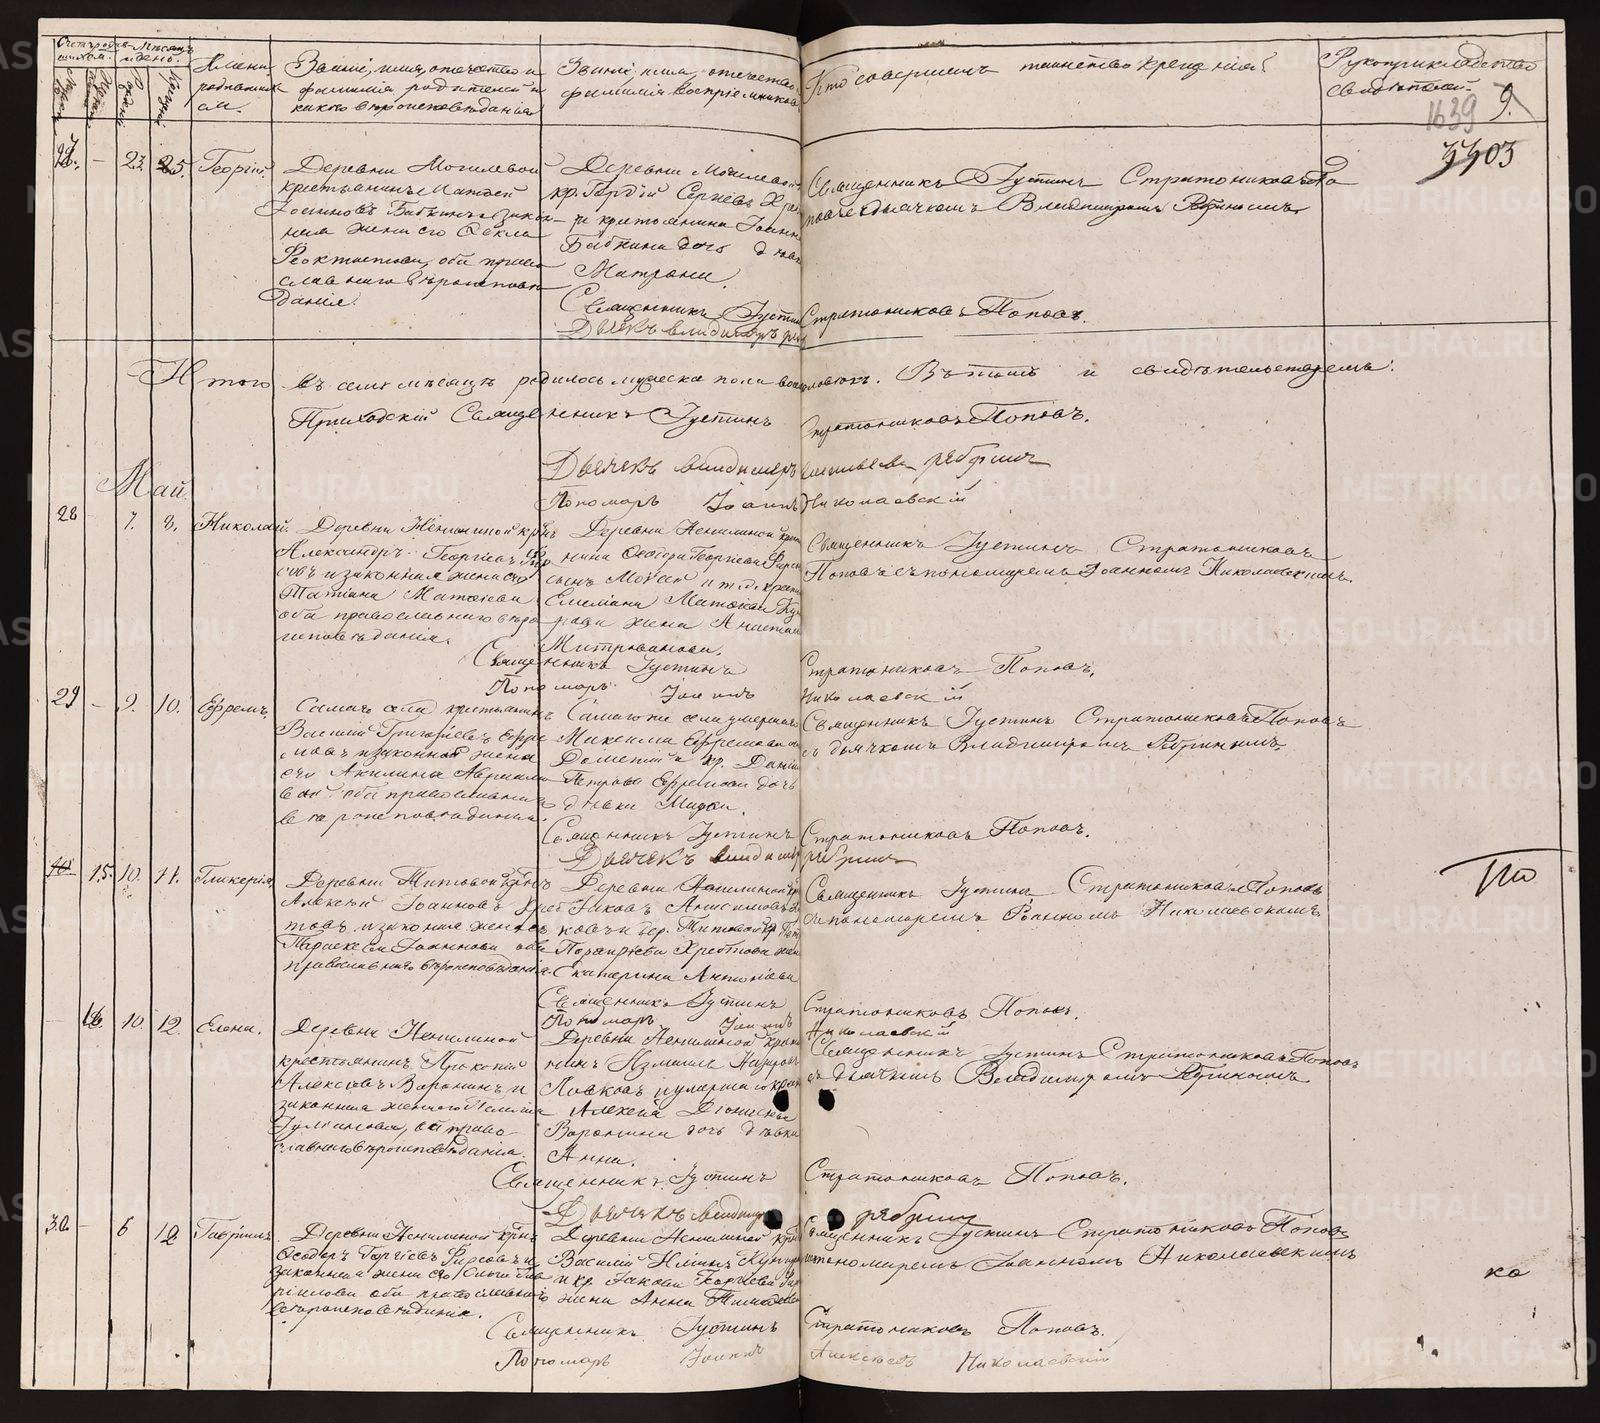 Счетъ родившихся.
Мѣсяцъ и день.
Имена родившихся.
Званіе, имя, отчество и
фамилія родителей и
какого вѣроисповѣданія
Званіе, имя, отчество
фамилія воспріемниковъ
Кто совершалъ таинство крещенія
Рукоприкладство
свидѣтелей
1639 9.
3303
27. — 23. 25. Георгій.
Деревни Могилевой
крестьянинъ Матвей
Іоанновъ Бабкинъ и закон-
ная жена его Ѳекла
Ѳеоктистова, оба право
славнаго вѣроисповѣ
данія.
Деревни Могилевой
кр. Гордій Сергіевъ
и крестьянина Іоанна
Бабкина дочь дѣвка
Матрона.
Священникъ Іустинъ Стратониковъ По
повъ съ дьячкомъ Владимиромъ Рябинымъ
Священникъ Іустинъ Стратониковъ Поповъ.
Дьячекъ Владимиръ
Итого въ семъ мѣсяцѣ родилось мужеска пола человѣкъ. Въ томъ и свидѣтельствуемъ:
Приходскій Священникъ Іустинъ Стратониковъ Поповъ.
Дьячекъ Владимиръ
Пономарь Іоаннъ Николаевскій
Май
28 — 7. 8. Николай.
Деревни Ненилиной кр-нъ
Александръ Георгіевъ Фир
совъ и законная жена его
Татіана Матѳіева
оба православнаго вѣро
исповѣданія.
Деревни Ненилиной крест
нина Ѳеодора Георгіева Фирсова
сынъ Моѵсей и
Емеліана Матѳіева
жена Анастасія
Митрофанова.
Священникъ Іустинъ Стратониковъ
Поповъ съ пономаремъ Іоанномъ Николаевскимъ.
Священникъ Іустинъ Стратониковъ Поповъ.
Пономарь Іоаннъ Николаевскій
29 — 9. 10. Ефремъ.
Самаго села крестьянинъ
Василій Григоріевъ Ефре
мовъ и законная жена
его Акилина Авраамо
ва оба православнаго
вѣроисповѣданія.
Самаго же села умершаго
Максима Ефремова сынъ
Дометій и кр. Даніила
Петрова Ефремова дочь
дѣвка Марѳа.
Священникъ Іустинъ Стратониковъ Поповъ
съ дьячкомъ Владимиромъ Рябинымъ
Священникъ Іустинъ Стратониковъ Поповъ.
Дьячекъ Владимиръ Рябинъ
15. 10. 11. Гликерія
Деревни Титовой кр-нъ
Алексѣй Іоанновъ Хреб
товъ и законная жена его
Параскева Іоаннова оба
православнаго вѣроисповѣданія.
Деревни Ненилиной кр
Іаковъ Анисимовъ
и дер. Титовой кр. Петра
Порфиріева Хребтова жена
Екатерина Антонова
Священникъ Іустинъ Стратониковъ Поповъ
съ пономаремъ Іоанномъ Николаевскимъ
Священникъ Іустинъ Стратониковъ Поповъ.
Пономарь Іоаннъ Николаевскій
16. 10. 12. Елена.
Деревни Ненилиной
крестьянинъ Прокопій
Алексіевъ Воронинъ и
законная жена его Пелагія
оба право-
славнаго вѣроисповѣданія.
Деревни Ненилиной кресть
нинъ Измаилъ Назаровъ
и умершаго кр
Алексѣя Діонисьева
Воронина дочь дѣвка
Анна.
Священникъ Іустинъ Стратониковъ Поповъ
съ дьячкомъ Владимиромъ Рябинымъ
Священникъ Іустинъ Стратониковъ Поповъ.
Дьячекъ Владимиръ Рябинъ
30 — 6 12 Гавріилъ
Деревни Ненилиной кр-нъ
Ѳеодоръ Георгіевъ Фирсовъ и
законная жена его Ольга Гав
ріилова оба православнаго
вѣроисповѣданія.
Деревни Ненилиной кр
Василій
и кр. Іакова Георгіева Фир
жена Анна Тимоѳеева
Священникъ Іустинъ Стратониковъ Поповъ
съ пономаремъ Іоанномъ Николаевскимъ
Священникъ Іустинъ Стратониковъ Поповъ.
Пономарь Іоаннъ Алексѣевъ Николаевскій
То
ко
METRIKI.GASO-URAL.RU